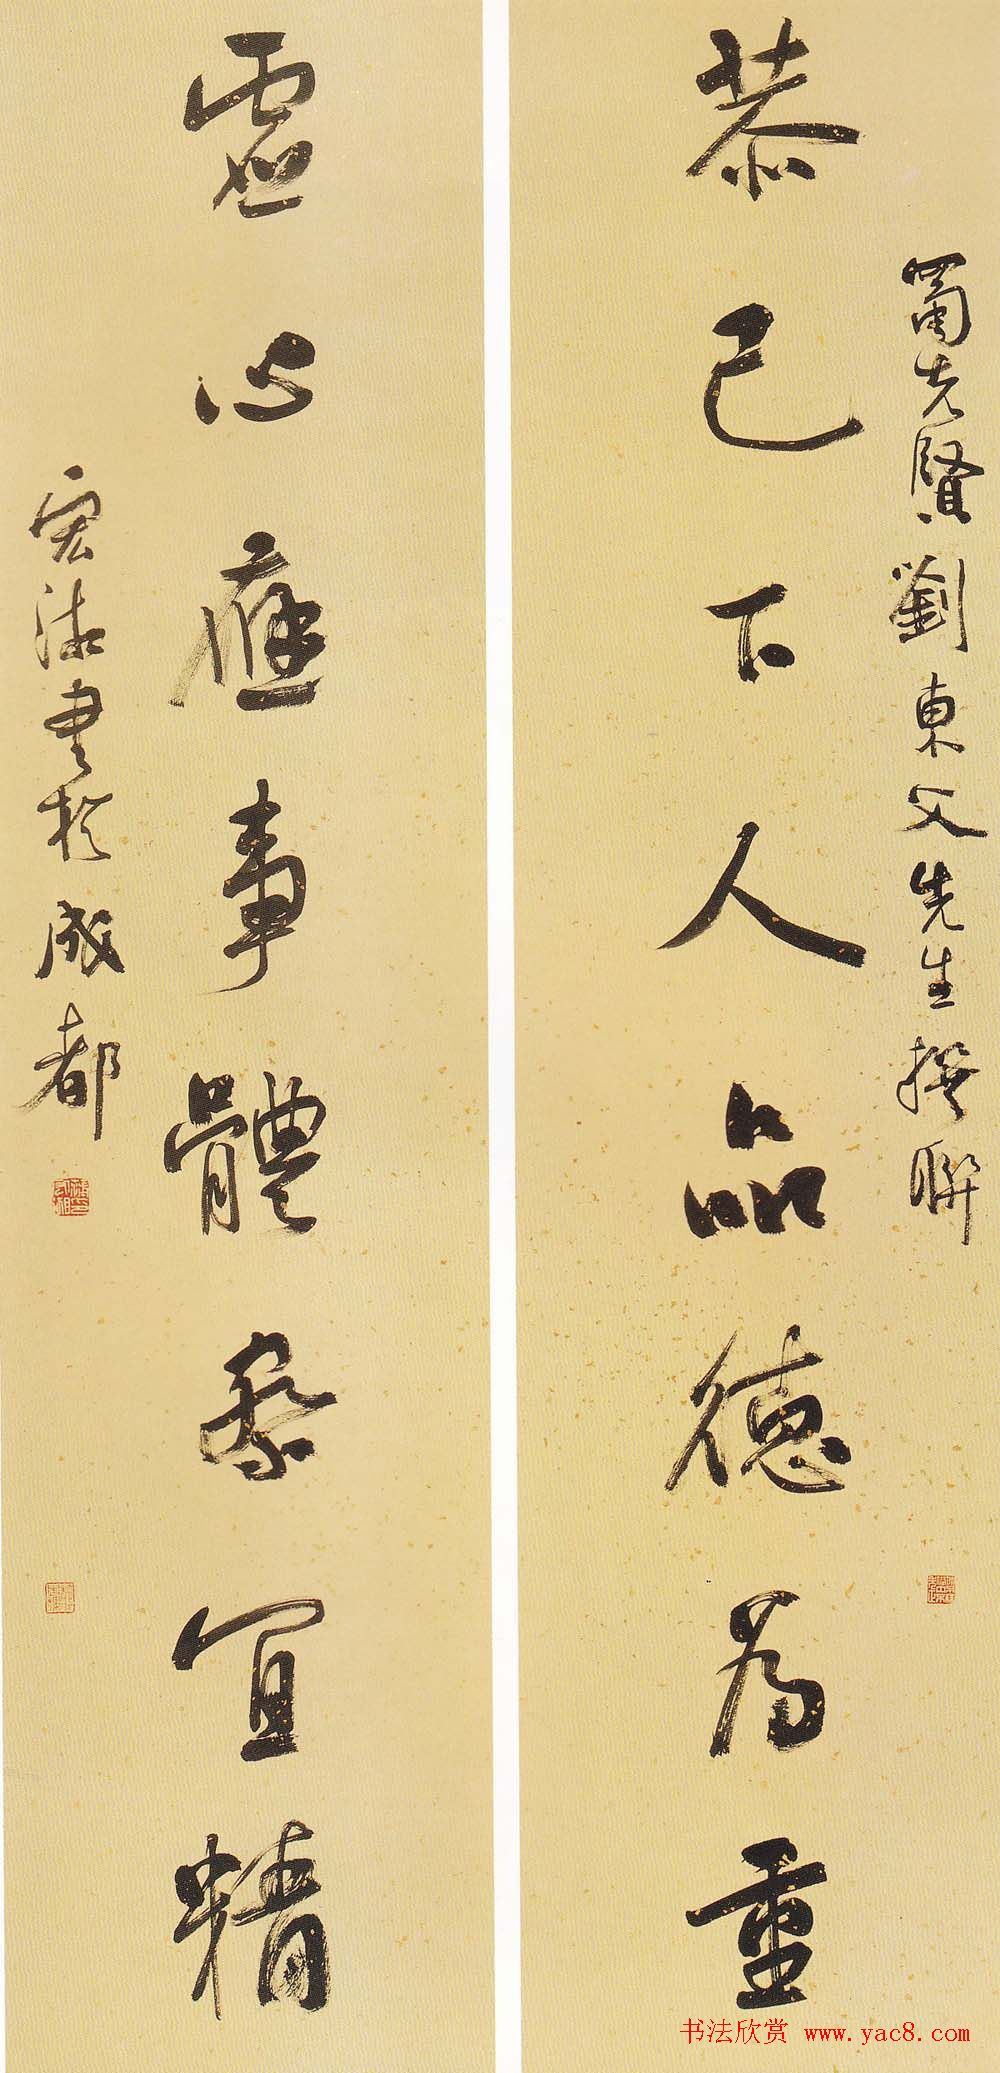 蜀先賢劉東父先生撰聯
恭己下人品德為重
虛心應事體察宜精
書於成都
书法欣赏 www.yac8.com